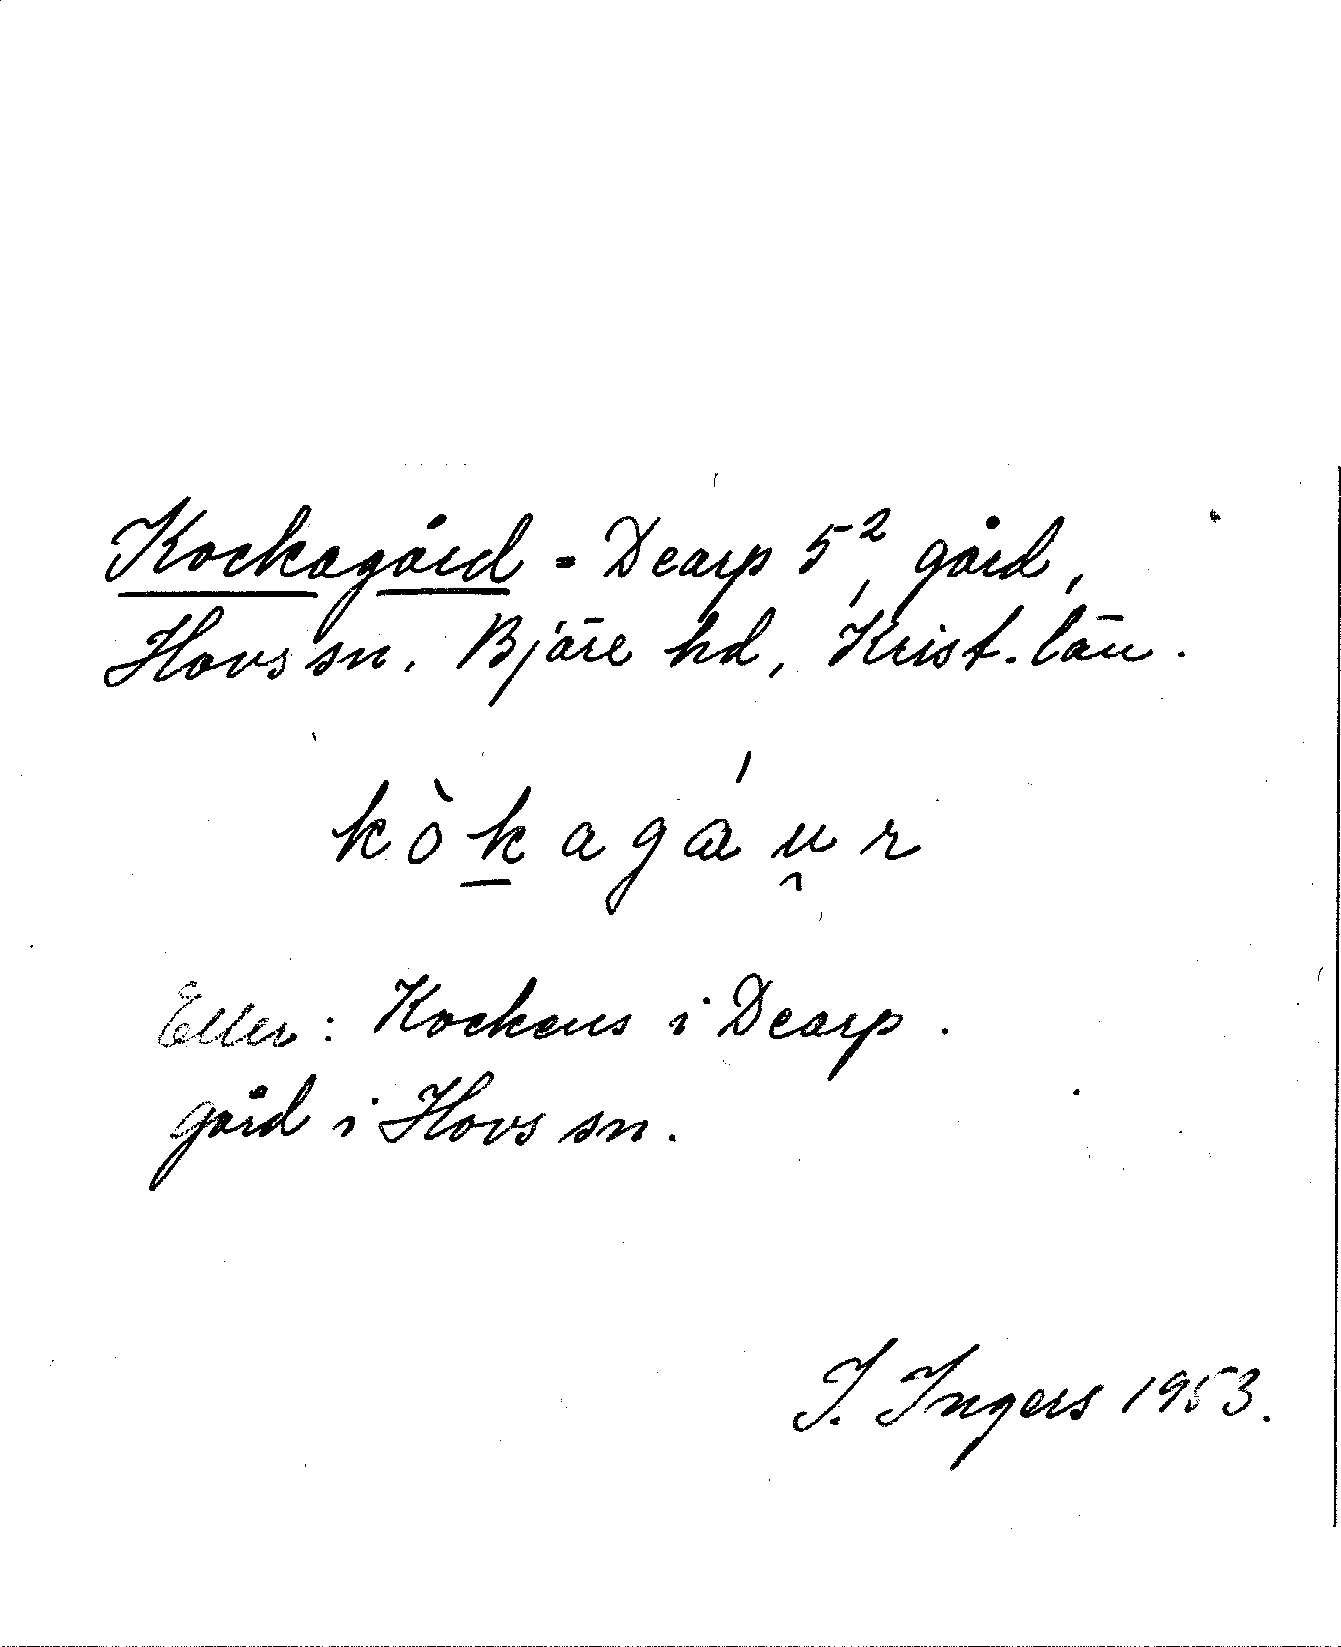 Kockagård = Dearp 5², gård,
Hovs sn, Bjäre hd, Krist. län.
kòkagáu̯r
Eller: Kockens i Dearp.
gård i Hovs sn.
I. Ingers 1953.